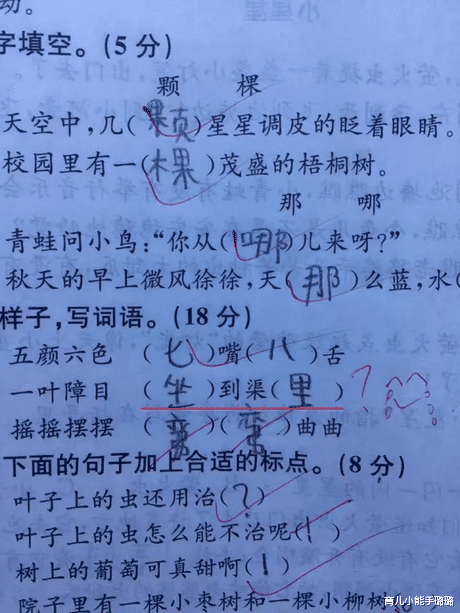 小星星
动。
字填空。(5分)
颗 棵
天空中,几(颗)星星调皮的眨着眼睛。
校园里有一(棵)茂盛的梧桐树。
那 哪
青蛙问小鸟:“你从(哪)儿来呀?”
秋天的早上微风徐徐,天(那)么蓝,水(
样子,写词语。(18分)
五颜六色 (七)嘴(八)舌
一叶障目 (坐)到渠(里)?
摇摇摆摆 (弯)(弯)曲曲
下面的句子加上合适的标点。(8分)
叶子上的虫还用治(?)
叶子上的虫怎么能不治呢(!)
树上的葡萄可真甜啊(!)
院子里有一棵小枣树和一棵小柳树
育儿小能手璐璐